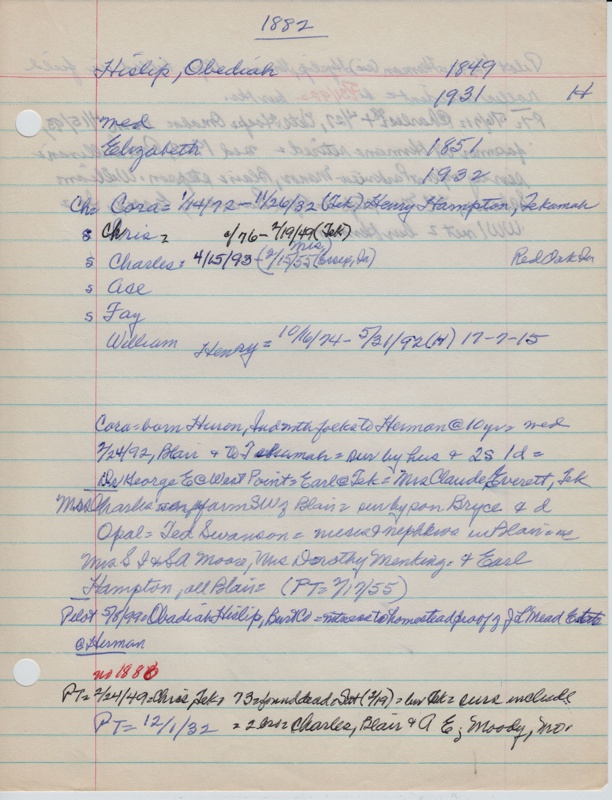 1882
Hislip, Obediah 1849
1931 H
med
Elizabeth 1851
1932
Ch: Cora = 1/14/72 - 11/26/32 (Tek) Henry Hampton, Tekamah
s Chris = 0/76 - 2/19/49 (Tek)
s Charles = 4/15/93 - (2/15/55 ( Ia) Mrs, Red Oak Ia
s Ase
s Fay
William Henry = 10/16/74 - 5/31/92 (H) 17-7-15
Cora = born Huron, Ind with folks to Herman @ 10 yrs = med
2/24/92, Blair & to Tekamah = sur by hus & 2s 1d =
Dr George E @ West Point = Earl @ Tek = Mrs Claude Everett, Tek
Mrs Charles = on farm SW of Blair = sur by son Bryce & d
Opal = Ted Swanson = nieces & nephews in Blair =
Mrs S I & SA Moore, Mrs Dorothy Menking & Earl
Hampton, all Blair = (PT = 2/17/55)
Pilot 5/8/99 = Obadiah Hislip, Burt Co = witness to homestead proof of J L Mead Estate
@ Herman
no 1886
PT = 2/24/49 = Chris, Tek, 73 = found dead = Sat (2/19) = liv Tek = surs include
PT = 12/1/32 = 2 bros = Charles, Blair & A E, Moody, Mo.